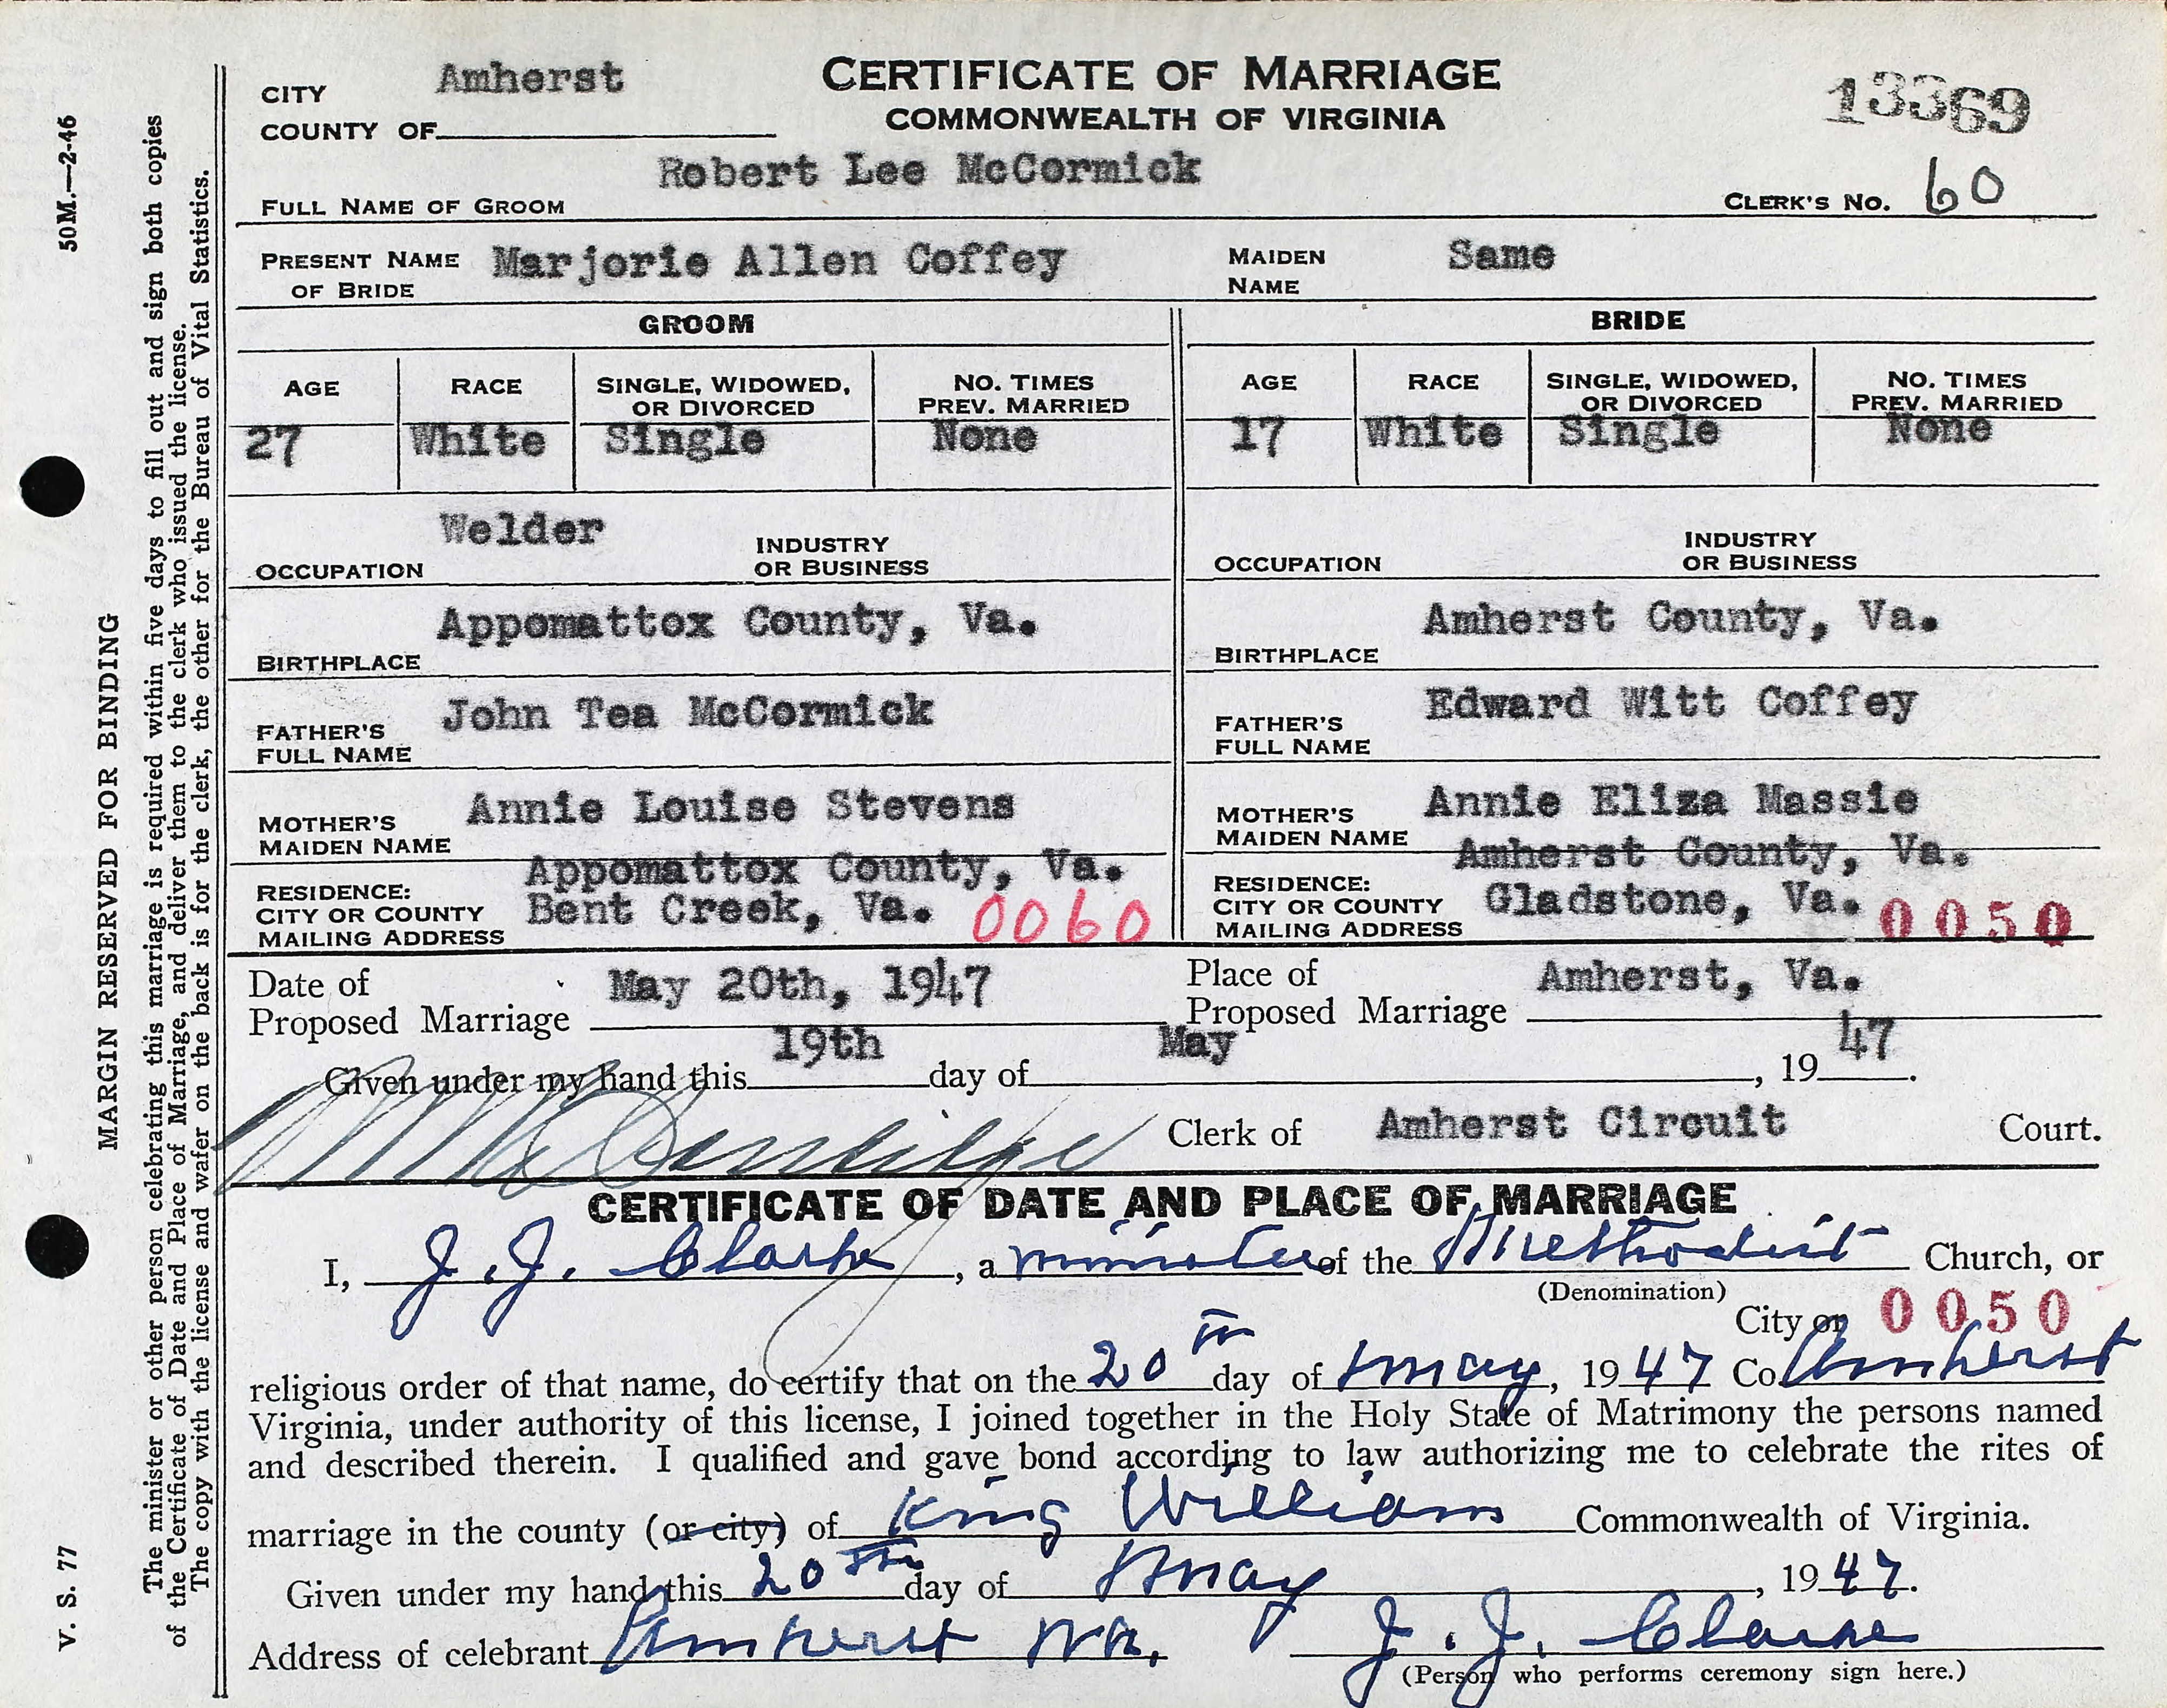 50M.—2-46
MARGIN RESERVED FOR BINDING
V. S. 77
The minister or other person celebrating this marriage is required within five days to fill out and sign both copies
of the Certificate of Date and Place of Marriage, and deliver them to the clerk who issued the license.
The copy with the license and wafer on the back is for the clerk, the other for the Bureau of Vital Statistics.
CERTIFICATE OF MARRIAGE
COMMONWEALTH OF VIRGINIA
13369
CITY
COUNTY OF Amherst
FULL NAME OF GROOM Robert Lee McCormick
CLERK'S No. 60
PRESENT NAME OF BRIDE Marjorie Allen Coffey MAIDEN NAME Same
GROOM BRIDE
AGE RACE SINGLE, WIDOWED, OR DIVORCED NO. TIMES PREV. MARRIED AGE RACE SINGLE, WIDOWED, OR DIVORCED NO. TIMES PREV. MARRIED
27 White Single None 17 White Single None
OCCUPATION Welder INDUSTRY OR BUSINESS OCCUPATION INDUSTRY OR BUSINESS
BIRTHPLACE Appomattox County, Va. BIRTHPLACE Amherst County, Va.
FATHER'S FULL NAME John Tea McCormick FATHER'S FULL NAME Edward Witt Coffey
MOTHER'S MAIDEN NAME Annie Louise Stevens MOTHER'S MAIDEN NAME Annie Eliza Massie
RESIDENCE: CITY OR COUNTY Appomattox County, Va. RESIDENCE: CITY OR COUNTY Amherst County, Va.
MAILING ADDRESS Bent Creek, Va. 0060 MAILING ADDRESS Gladstone, Va. 0050
Date of Proposed Marriage May 20th, 1947 Place of Proposed Marriage Amherst, Va.
Given under my hand this 19th day of May, 1947.
Clerk of Amherst Circuit Court.
CERTIFICATE OF DATE AND PLACE OF MARRIAGE
I, J. J. Clarke, a minister of the Methodist Church, or
(Denomination)
City or 0050
religious order of that name, do certify that on the 20th day of May, 1947 Co. Amherst
Virginia, under authority of this license, I joined together in the Holy State of Matrimony the persons named
and described therein. I qualified and gave bond according to law authorizing me to celebrate the rites of
marriage in the county (or city) of King William Commonwealth of Virginia.
Given under my hand this 20th day of May, 1947.
Address of celebrant Amherst Va. J. J. Clarke
(Person who performs ceremony sign here.)